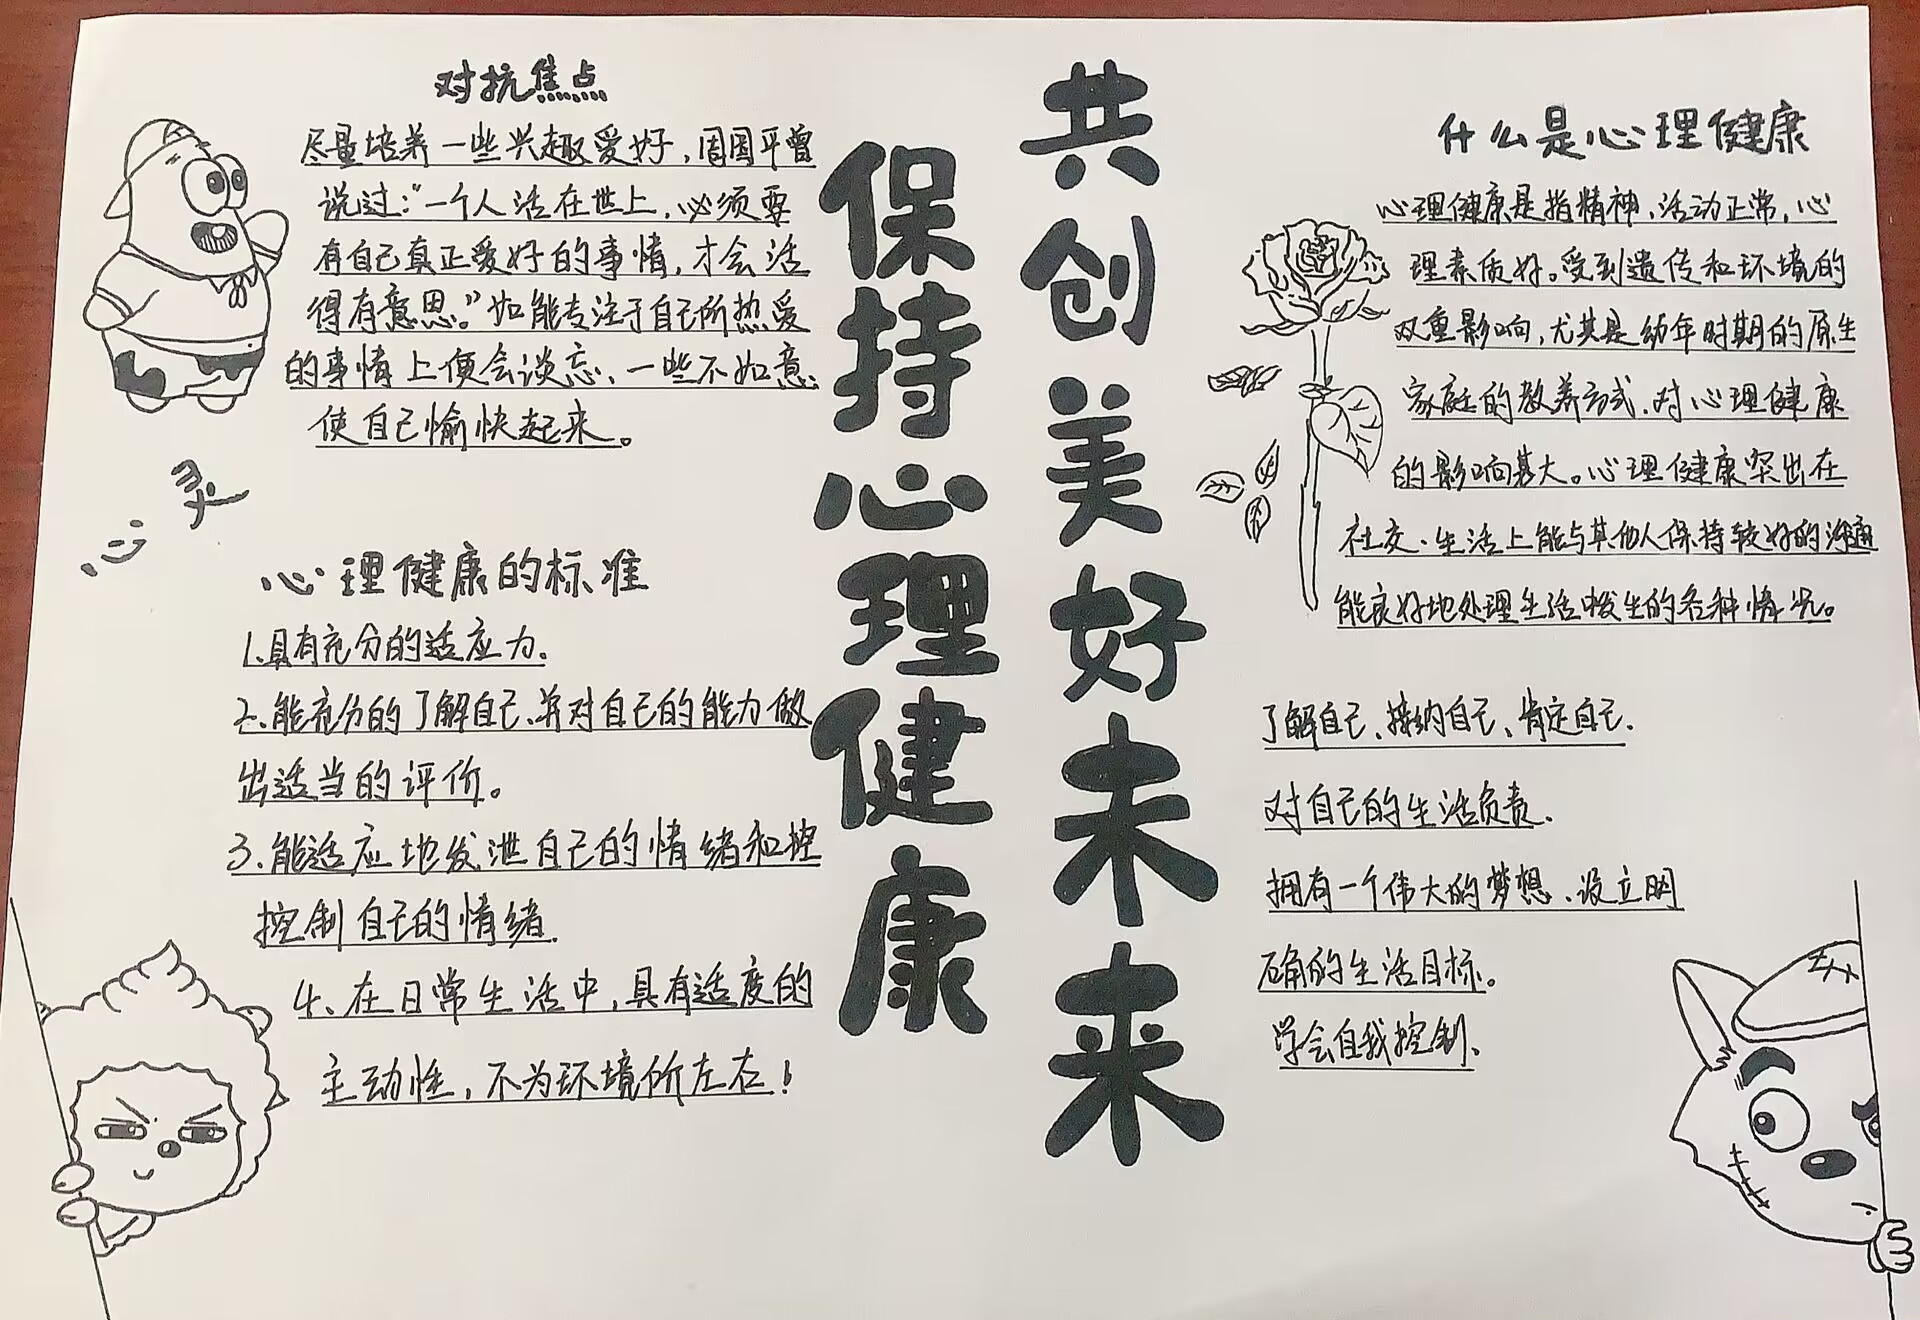 对抗焦点
尽量培养一些兴趣爱好，周国平曾
说过：“一个人活在世上，必须要
有自己真正爱好的事情，才会活
得有意思。”如能专注于自己所热爱
的事情上便会谈忘、一些不如意、
使自己愉快起来。
心灵
心理健康的标准
1、具有充分的适应力.
2、能充分的了解自己、并对自己的能力做
出适当的评价。
3、能适应地发泄自己的情绪和控
控制自己的情绪.
4、在日常生活中，具有适度的
主动性，不为环境所左右！
保持心理健康
共创美好未来
什么是心理健康
心理健康是指精神、活动正常，心
理素质好。受到遗传和环境的
双重影响，尤其是幼年时期的原生
家庭的教养方式、对心理健康
的影响甚大。心理健康突出在
社交、生活上能与其他人保持较好的沟通
能良好地处理生活中发生的各种情况。
了解自己、接纳自己、肯定自己.
对自己的生活负责.
拥有一个伟大的梦想、设立明
确的生活目标。
学会自我控制、